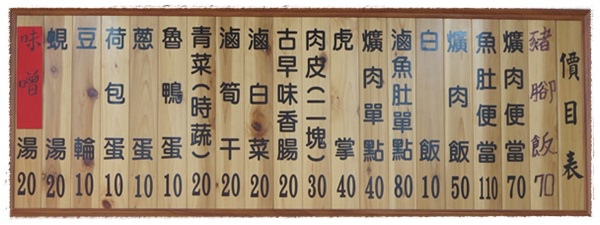 價目表
豬腳飯 70
爌肉便當 70
魚肚便當 110
爌肉飯 50
白飯 10
滷魚肚單點 80
爌肉單點 40
虎掌 40
肉皮(二塊) 30
古早味香腸 20
滷白菜 20
滷筍干 20
青菜(時蔬) 20
魯鴨蛋 10
蔥蛋 10
荷包蛋 10
豆輪 10
蜆湯 20
味噌湯 20